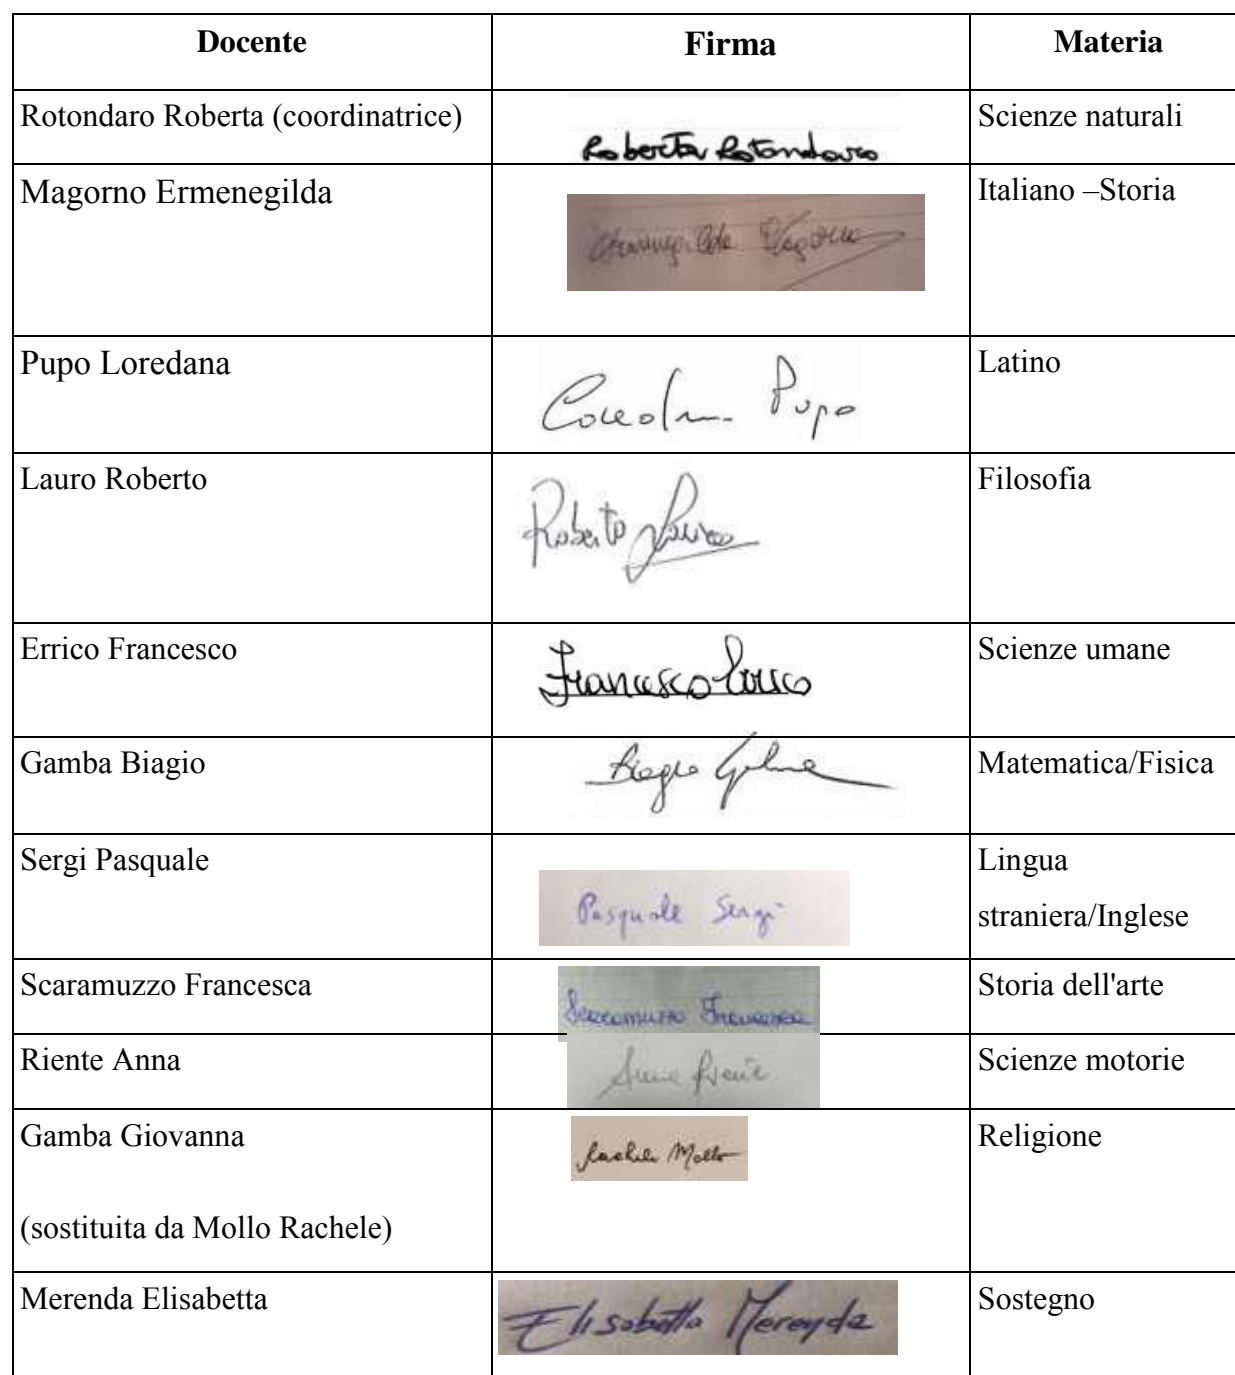 Docente Firma Materia
Rotondaro Roberta (coordinatrice) Roberta Rotondaro Scienze naturali
Magorno Ermenegilda Ermenegilda Magorno Italiano –Storia
Pupo Loredana Pupo Latino
Lauro Roberto Roberto Lauro Filosofia
Errico Francesco Francesco Errico Scienze umane
Gamba Biagio Biagio Matematica/Fisica
Sergi Pasquale Pasquale Sergi Lingua
straniera/Inglese
Scaramuzzo Francesca Scaramuzzo Francesca Storia dell'arte
Riente Anna Anna Riente Scienze motorie
Gamba Giovanna Rachele Mollo Religione
(sostituita da Mollo Rachele)
Merenda Elisabetta Elisabetta Merenda Sostegno